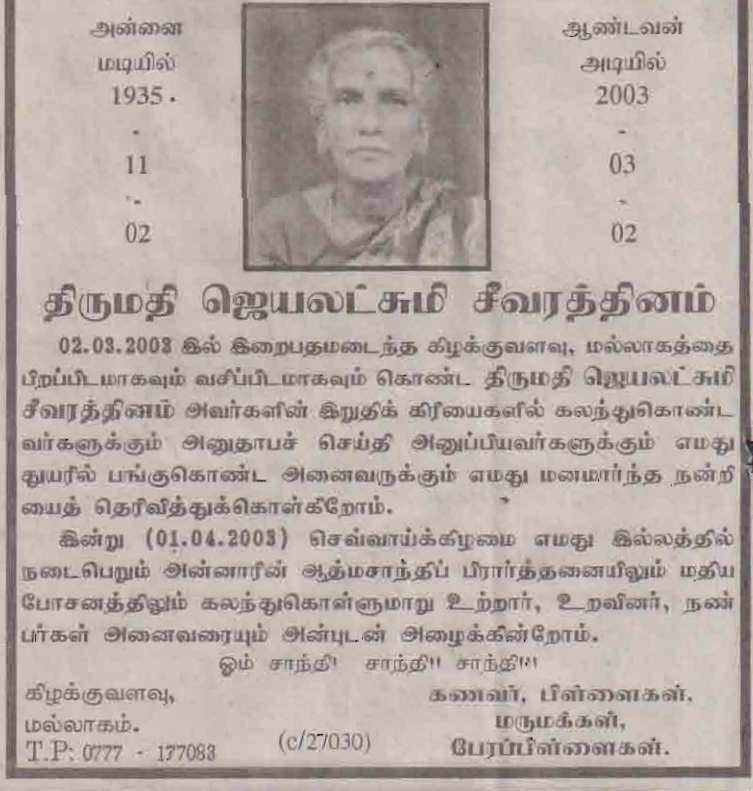 அன்னை
மடியில்
1935 .
-
11
-
02
ஆண்டவன்
அடியில்
2003
-
03
-
02
திருமதி ஜெயலட்சுமி சீவரத்தினம்
02.03.2003 இல் இறைபதமடைந்த கிழக்குவளவு, மல்லாகத்தை
பிறப்பிடமாகவும் வசிப்பிடமாகவும் கொண்ட திருமதி ஜெயலட்சுமி
சீவரத்தினம் அவர்களின் இறுதிக் கிரியைகளில் கலந்துகொண்ட
வர்களுக்கும் அனுதாபச் செய்தி அனுப்பியவர்களுக்கும் எமது
துயரில் பங்குகொண்ட அனைவருக்கும் எமது மனமார்ந்த நன்றி
யைத் தெரிவித்துக்கொள்கிறோம்.
இன்று (01.04.2003) செவ்வாய்க்கிழமை எமது இல்லத்தில்
நடைபெறும் அன்னாரின் ஆத்மசாந்திப் பிரார்த்தனையிலும் மதிய
போசனத்திலும் கலந்துகொள்ளுமாறு உற்றார், உறவினர், நண்
பர்கள் அனைவரையும் அன்புடன் அழைக்கின்றோம்.
ஓம் சாந்தி! சாந்தி!! சாந்தி!!!
கிழக்குவளவு,
மல்லாகம்.
T.P: 0777 - 177083
(c/27030)
கணவர், பிள்ளைகள்,
மருமக்கள்,
பேரப்பிள்ளைகள்.